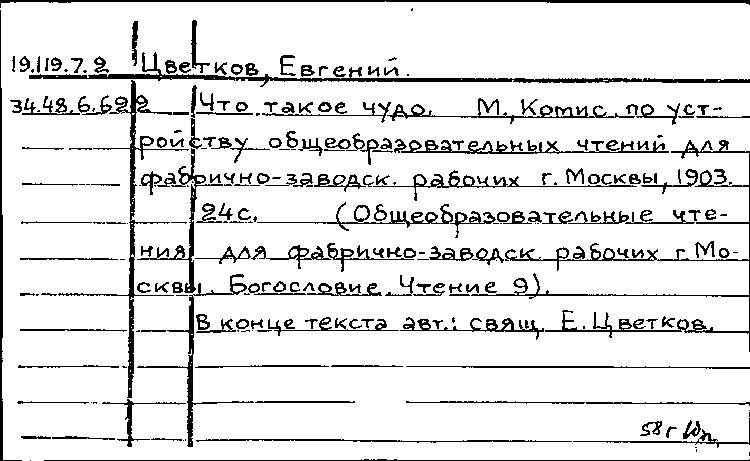 19.119.7.2 Цветков, Евгений.
34.48.6.622 Что такое чудо. М., Комис. по уст-
ройству общеобразовательных чтений для
фабрично-заводск. рабочих г. Москвы, 1903.
24с. (Общеобразовательные чте-
ния для фабрично-заводск. рабочих г. Мо-
сквы. Богословие. Чтение 9).
В конце текста авт.: свящ. Е. Цветков.
58 г